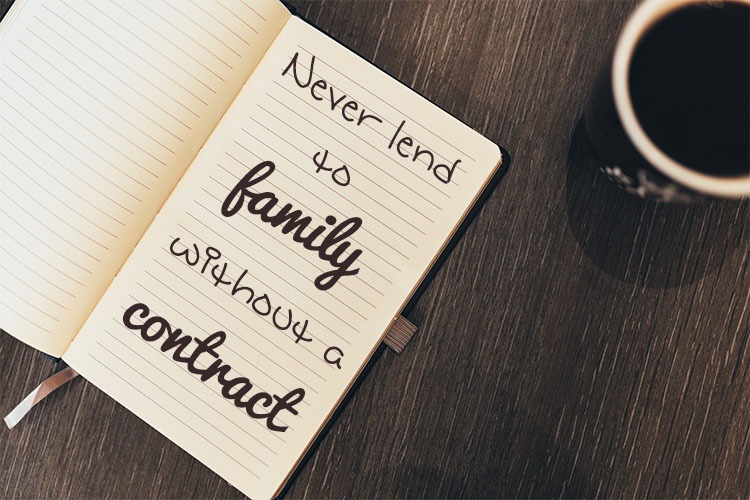 Never lend
to
family
without a
contract